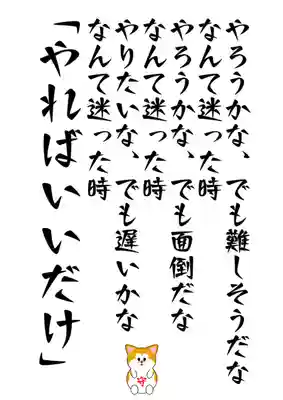 やろうかな、でも難しそうだな
なんて迷った時
やろうかな、でも面倒だな
なんて迷った時
やりたいな、でも遅いかな
なんて迷った時
「やればいいだけ」
守